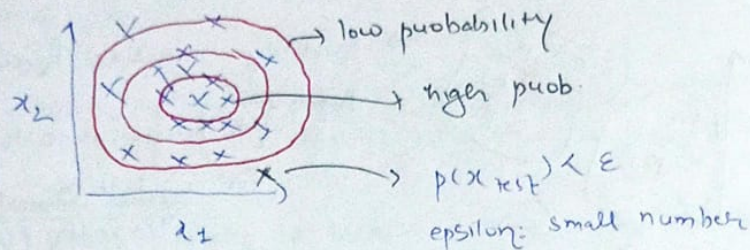 low probability
x₂
higher prob.
p(x test) < ε
x1
epsilon: small number